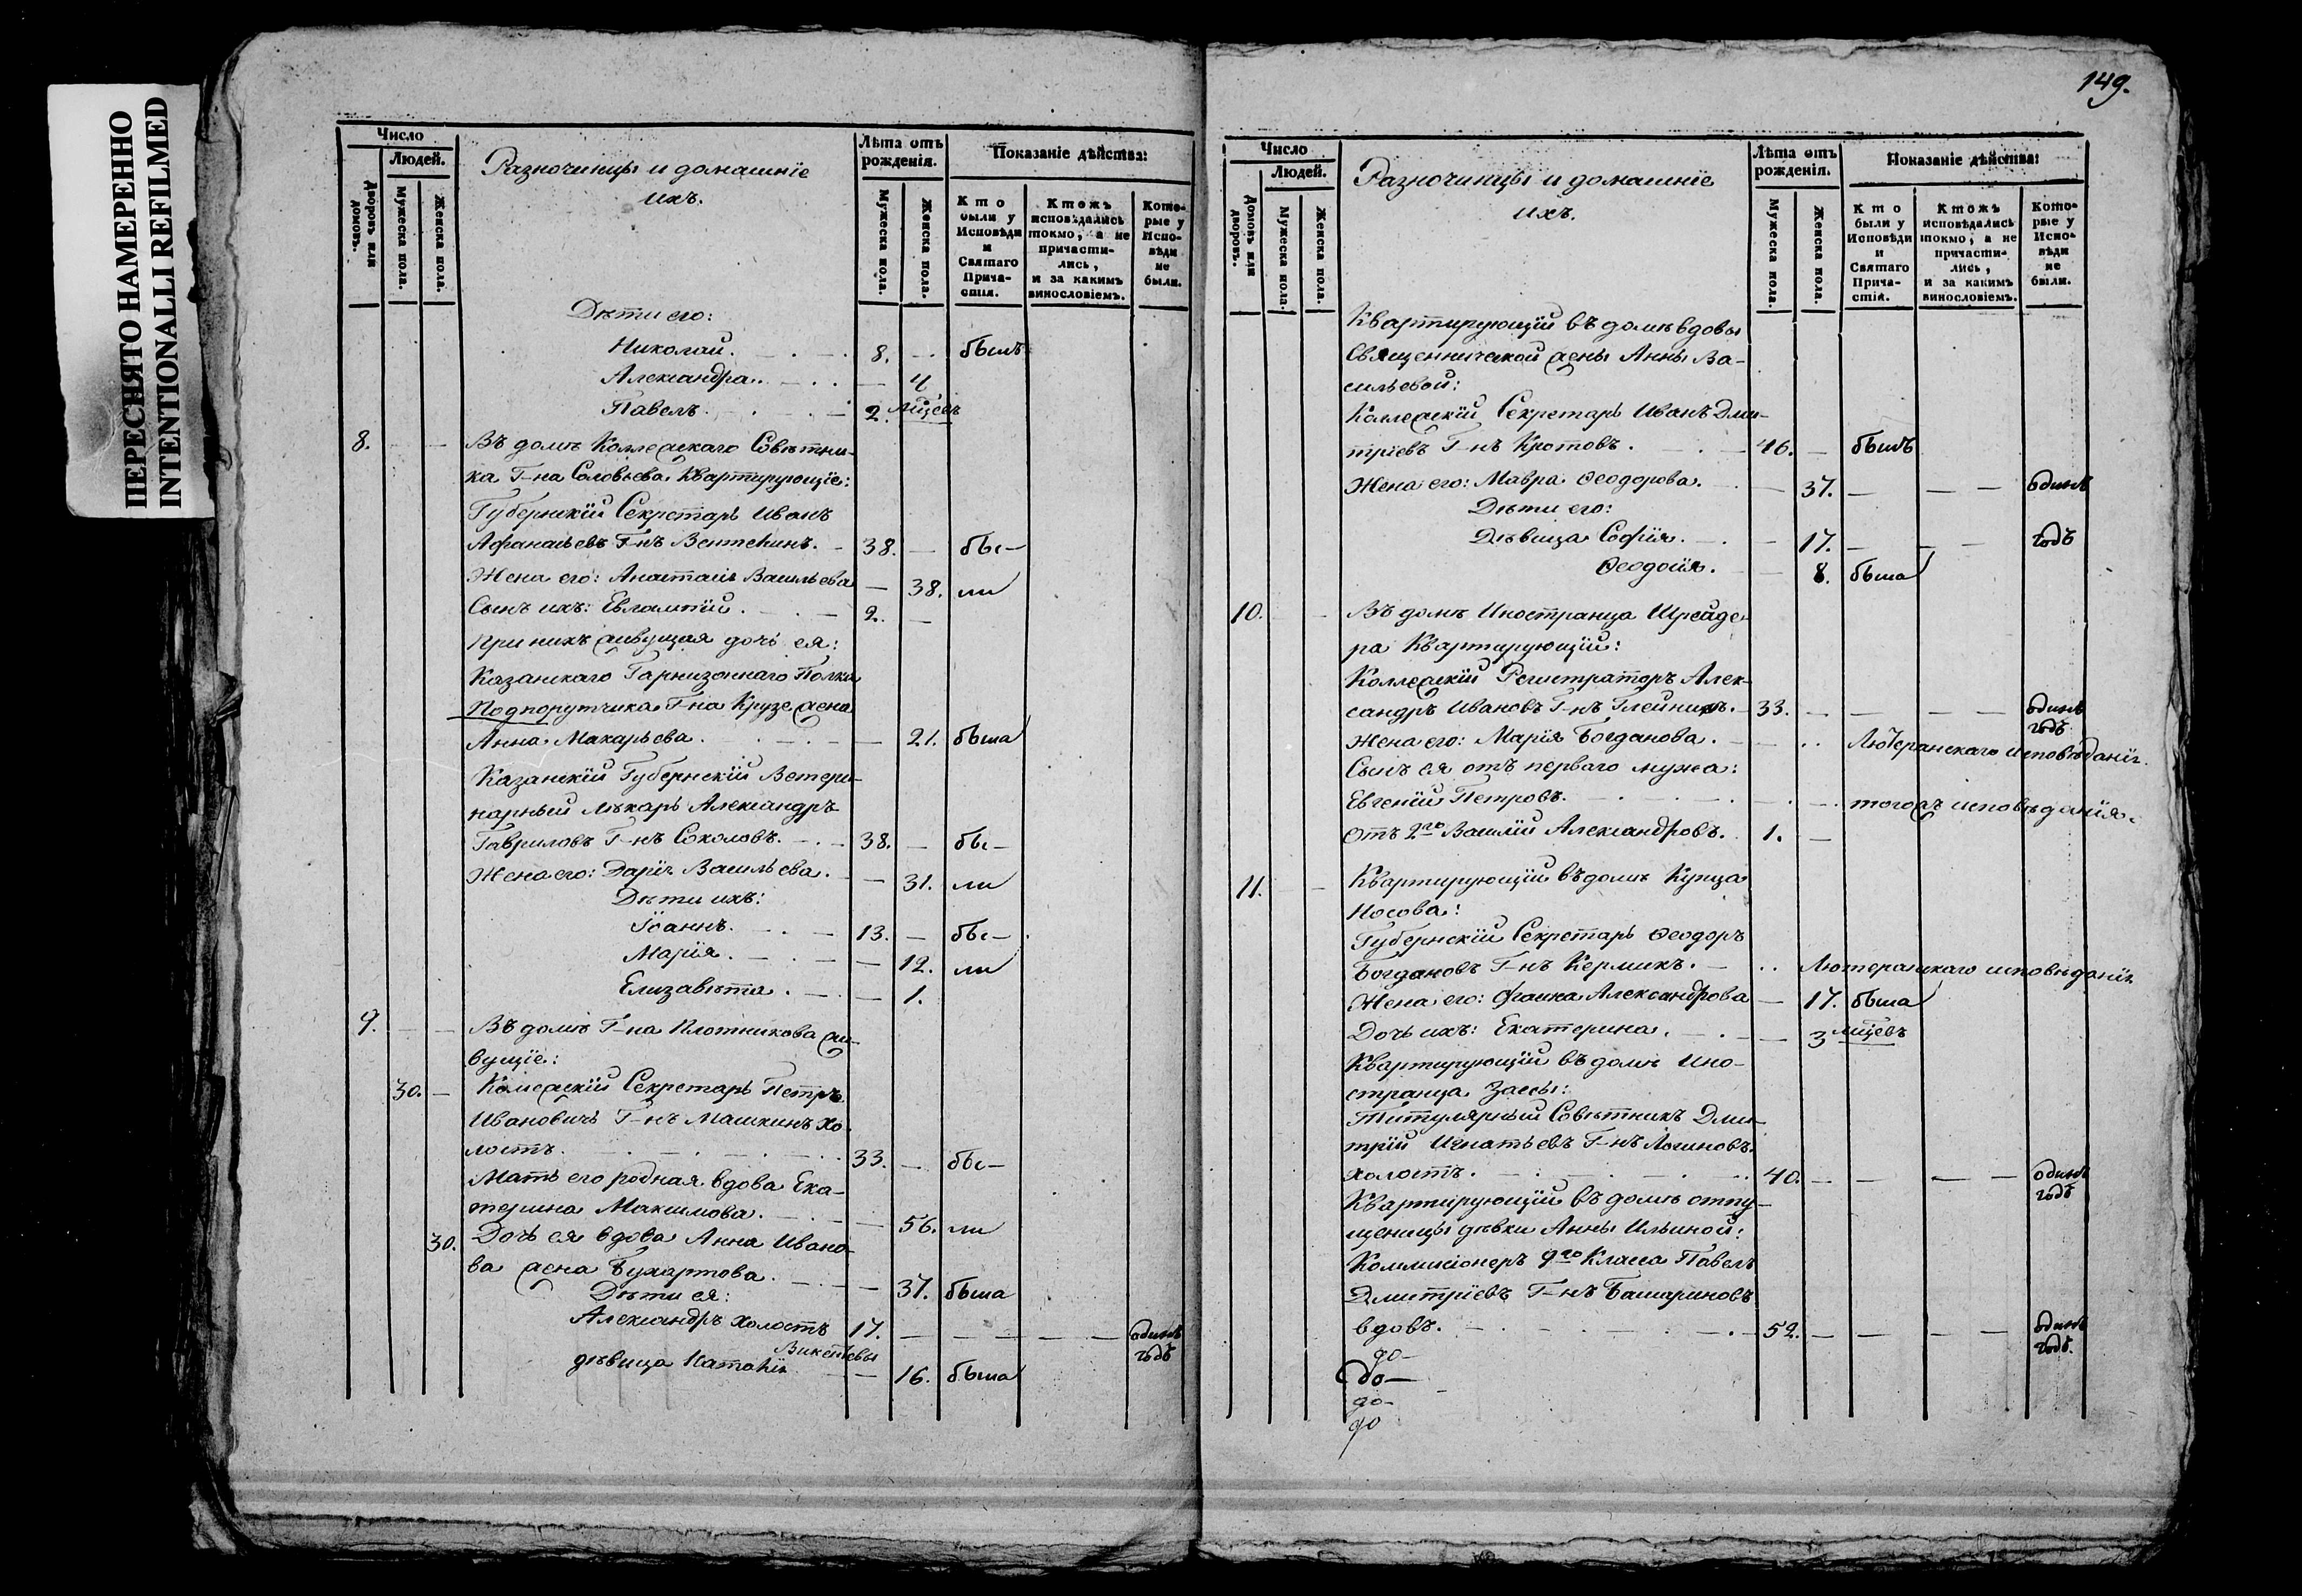 ПЕРЕСНЯТО НАМЕРЕННО
INTENTIONALLI REFILMED
Число
Людей.
Дворовъ или домовъ.
Мужеска пола.
Женска пола.
Разночинцы и домашнїе
ихъ.
Лѣта отъ рожденія.
Мужеска пола.
Женска пола.
Показаніе дѣйства:
Кто были у Исповѣди и Святаго Причастія.
Ктожъ исповѣдались токмо, а не причастились, и за какимъ винословіемъ.
Которые у Исповѣди не были.
Дѣти его:
Николай. 8. — былъ
Александра. — 4
Павелъ. 2. Мцевъ
8. — — Въ домѣ Коллежскаго Совѣтни-
ка Г-на Соловьева Квартирующїе:
Губернскїй Секретарь Иванъ
Афанасьевъ Г-нъ Вентекинъ. 38. — бы-
Жена его: Анастасія Васильева — 38. ли
Сынъ ихъ: Евлампїй. 2. —
При нихъ живущая дочь ея:
Казанскаго Гарнизоннаго Полка
Подпорутчика Г-на Крузе жена
Анна Макарьева. — 21. была
Казанскїй Губернскїй Ветери-
нарный лѣкарь Александръ
Гавриловъ Г-нъ Соколовъ. 38. — бы-
Жена его: Дарія Васильева. — 31. ли
Дѣти ихъ:
Іоаннъ. 13. — бы-
Марїя. — 12. ли
Елизавѣта. — 1.
9. — — Въ домѣ Г-на Плотникова жи-
вущїе:
30. — Колежскїй Секретарь Петръ
Ивановичь Г-нъ Машкинъ хо-
лостъ. 33. — бы-
Мать его родная вдова Ека-
терина Максимова. — 56. ли
30. Дочь ея вдова Анна Ивано-
ва жена Бухартова. — 37. была
Дѣти ея:
Александръ холостъ 17. — — — — одинъ
годъ
дѣвица Наталїя — 16. была
149.
Число
Людей.
Домовъ или дворовъ.
Мужеска пола.
Женска пола.
Разночинцы и домашнїе
ихъ.
Лѣта отъ рожденія.
Мужеска пола.
Женска пола.
Показаніе дѣйства:
Кто были у Исповѣди и Святаго Причастія.
Ктожъ исповѣдались токмо, а не причастились, и за какимъ винословіемъ.
Которые у Исповѣди не были.
Квартирующїй въ домѣ вдовы
Священнической жены Анны Ва-
сильевой:
Коллежскїй Секретарь Иванъ Дми-
трїевъ Г-нъ Кротовъ. 46. — былъ
Жена его: Мавра Ѳеодорова. — 37. — — — одинъ
Дѣти его:
Дѣвица Софїя. — 17. — — — годъ
Ѳеодосїя. — 8. была
10. — Въ домѣ Иностранца Шреаде-
ра Квартирующїй:
Коллежскїй Регистраторъ Алек-
сандръ Ивановъ Г-нъ Глейнихъ. 33. — — — — одинъ
годъ
Жена его: Марїя Богданова. — Лютеранскаго исповѣданїя.
Сынъ ея отъ перваго мужа:
Евгенїй Петровъ. — тогожъ исповѣданїя.
Отъ 2го Василїй Александровъ. 1. —
11. — Квартирующїй въ домѣ Купца
Носова:
Губернскїй Секретарь Ѳеодоръ
Богдановъ Г-нъ Кермикъ. Лютеранскаго исповѣданїя
Жена его: Фаина Александрова — 17. была
Дочь ихъ: Екатерина. — 3 мцевъ
Квартирующїй въ домѣ Ино-
странца Зассы:
Титулярный Совѣтникъ Дми-
трїй Игнатьевъ Г-нъ Логиновъ
холостъ. 40. — — — — одинъ
годъ
Квартирующїй въ домѣ отпу-
щеницы дѣвки Анны Ильиной:
Коммисіонеръ 9го Класса Павелъ
Дмитрїевъ Г-нъ Башариновъ
вдовъ. 52. — — — — одинъ
годъ.
до-
до-
до-
до